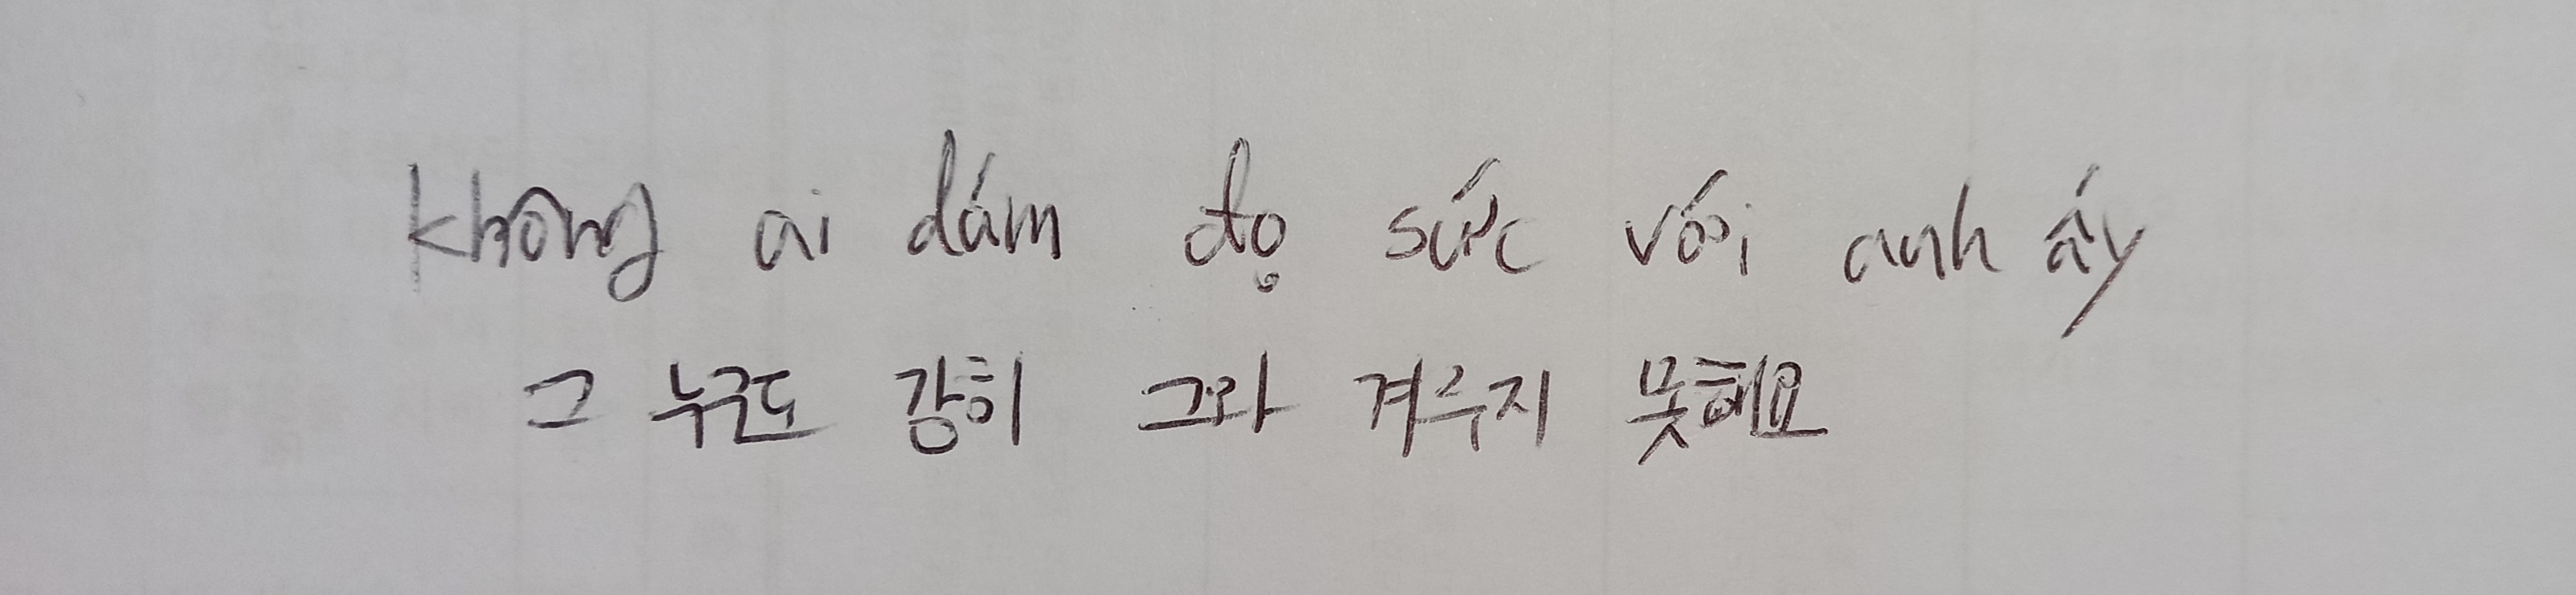 không ai dám đọ sức với anh ấy
그 누구도 강히 그와 겨루지 못해요